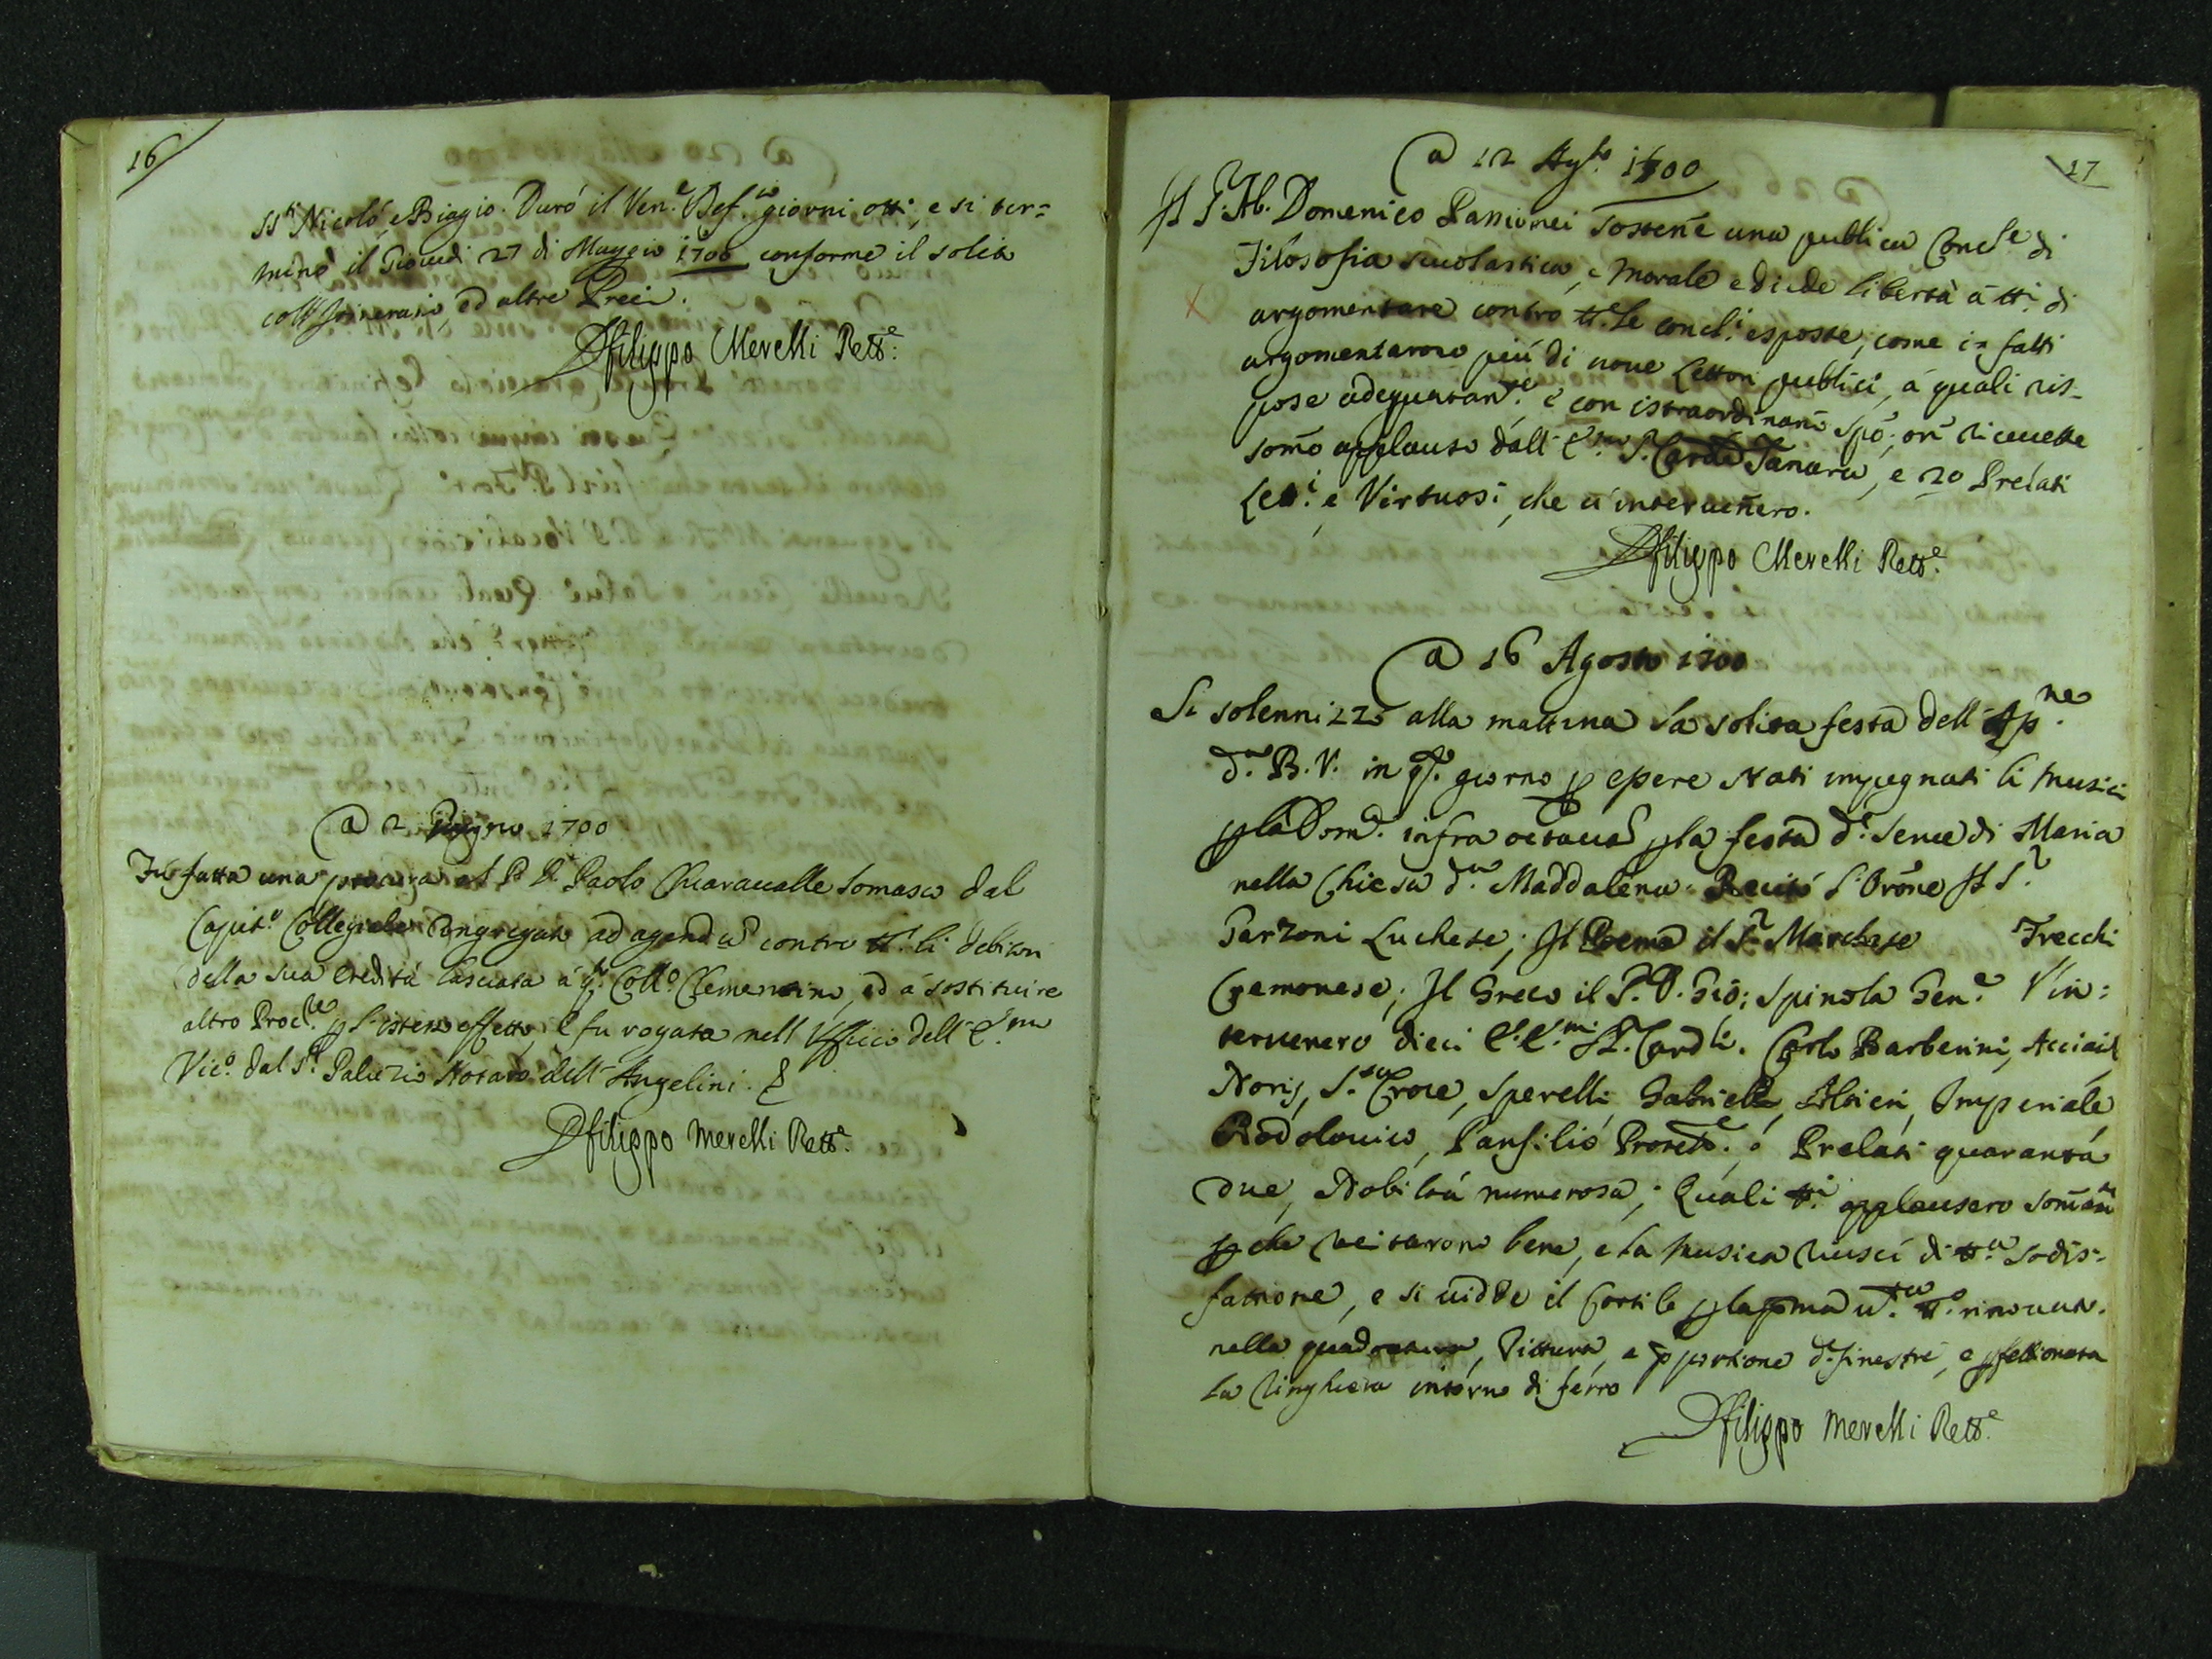 16
SS.ti Nicoló, e Biagio. Duró il Ven.e Def.to giorni otto, e si ter=
minò il Giouedi 27 di Maggio 1700 conforme il solito
coll'Itinerario, ed altre Preci.
D filippo Merelli Rett.e
a 2 Giugno 1700
Fù fatta una procura al P. D. Paolo Chiaraualle Somasco dal
Capit.o Collegiale Congregato ad agendū contro tt.i li debitori
della sua eredità lasciata á q.o Coll.o Clementino, ed á sostituire
altro Proc.re p l'istesso effetto, e fu rogata nell'Officio dell'E.mo
Vic.o dal S.r Paluzio Notaro dell'Angelini.
D filippo Merelli Rett.e
17
a 12 Ag.to 1700
Il S. Ab. Domenico Passionei sosteñe una publica Concl.e di
Filosofia scuolastica, e Morale e diede libertà á tt.i di
argomentare contro tt.e le concl.i esposte, come in fatti
argomentarono più di noue Lettori publici, á quali ris-
pose adeguatam.te e con istraordinario spõ; onde riceuette
som̃o applauso dall'E.mo S. Card.e Tanara, e 20 Prelati
Let.i e Virtuosi, che u'interueñero.
D filippo Merelli Rett.e
a 16 Agosto 1700
Si solennizzò alla mattina la solita festa dell'Ap.ne
d.a B. V. in q.o giorno p essere stati impegnati li musici
p la Dom.a infra octauā p la festa d.e Serue di Maria
nella Chiesa d.a Maddalena. Recitò l'Orõne Il S.r
Garzoni Luchese; Il Poema il S.r Marchese Trecchi
Cremonese; Il Greco il P. D. Gio: Spinola Gen.e V'in=
teruenero dieci E.E.mi SS.ri Card.li. Carlo Barberini, Acciaioli
Noris, S.ta Croce, Sperelli, Gabrielli, Altieri, Imperiale
Rodolouico, Panfilio Protett.e; e Prelati quaranta
due, Nobiltà numerosa; Quali tt.i applausero som̃am.te
p che recitarono bene, e la Musica riuscí di tt.a sodis-
fatione, e si uidde il Cortile p la prima u.ta tt.o rinouato
nella quadratura, Pittura, e pportione di finestre, e pfettionata
la ringhiera intorno di ferro
D filippo Merelli Rett.e